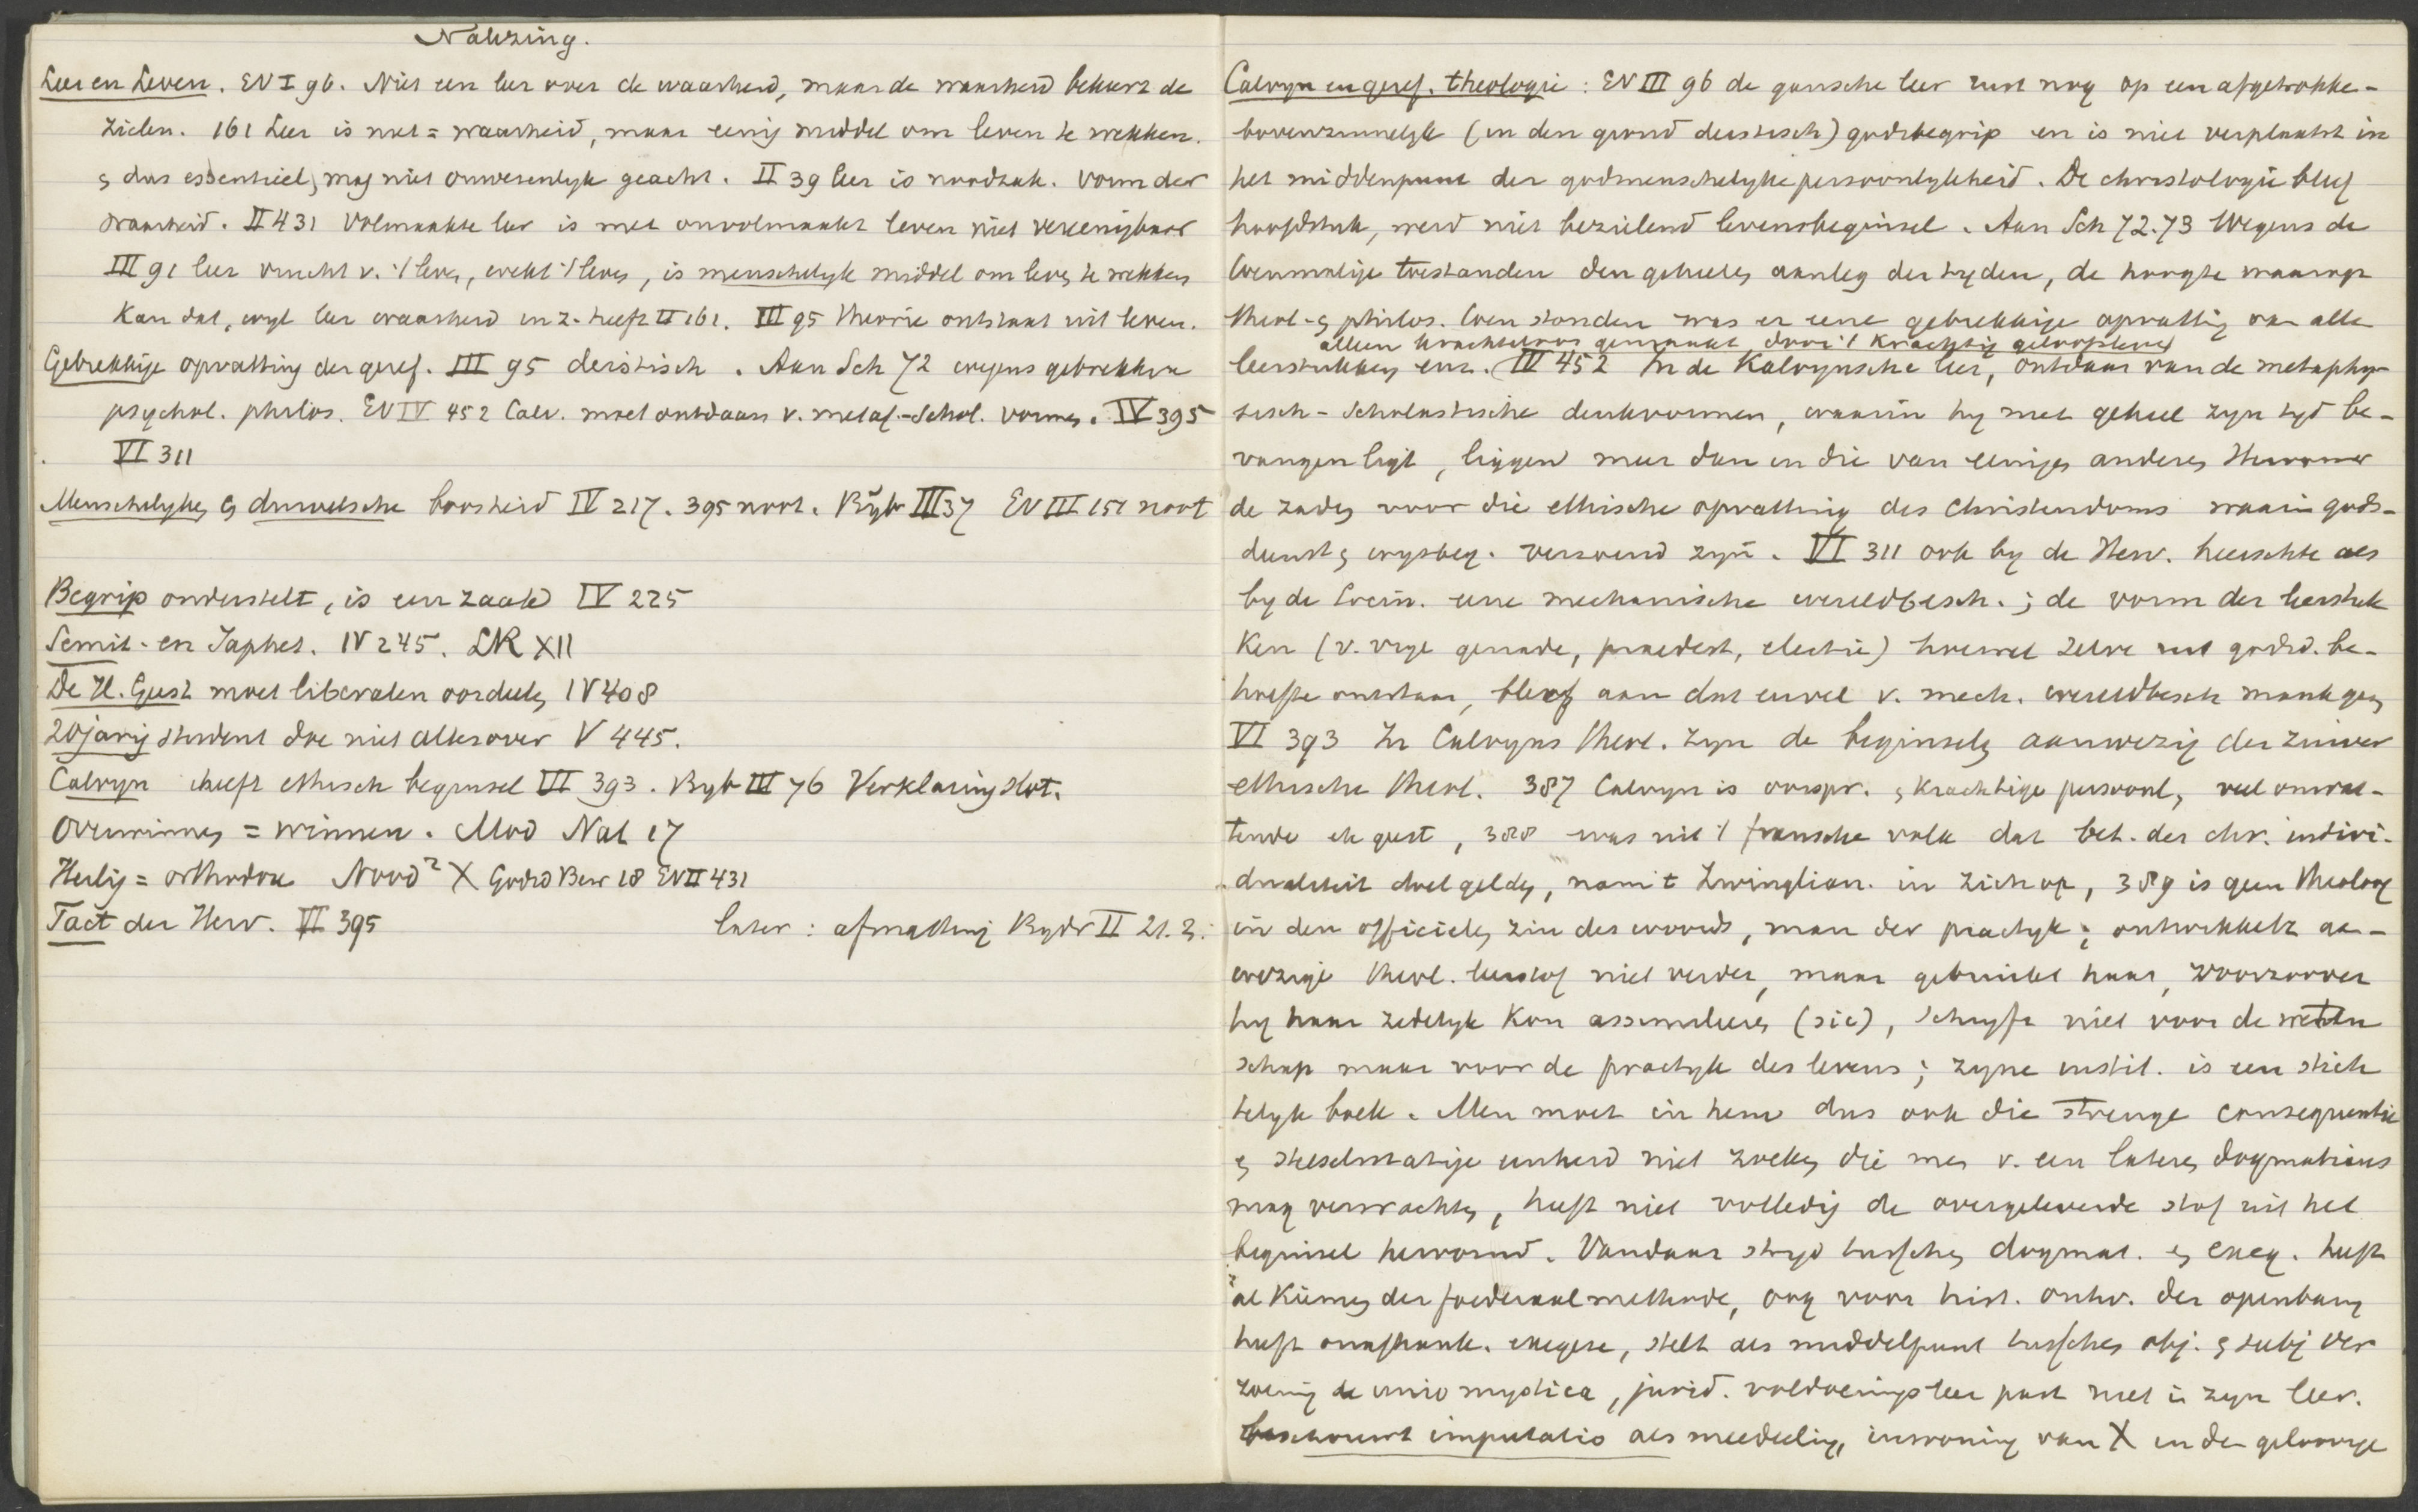 Nalezing.
Leer en Leven. EV I 96. Niet een leer over de waarheid, maar de waarheid bekeert de
zielen. 161 Leer is niet = waarheid, maar eenig middel om leven te wekken.
& dus essentieel, mag niet onwesenlyk geacht. II 39 leer is noodzak. vorm der
waarheid. II 431 Volmaakte leer is met onvolmaakt leven niet vereenigbaar
III 91 leer vrucht v. 't leven, wekt 't leven, is menschelyk middel om leven te wekken
Kan dat, wyl leer waarheid in z. heeft II 161. III 95 theorie ontstaat uit leven.
Gebrekkige opvatting der geref. III 95 deistisch. Aan Sch 72 wegens gebrekkige
psychol. philos. EV IV 452 Calv. moet ontdaan v. metaf.-Schol. vormen. IV 395
VI 311
Menschelyke & duivelsche boosheid IV 217. 395 noot. Bydr III 37 EV III 151 noot
Begrip onderstelt, is een zaak IV 225
Semit- en Japhet. IV 245. LR XII
De H. Geest moet liberalen oordeelen IV 408
20jarig student doe niet alles over V 445.
Calvyn heeft ethisch beginsel VI 393. Bydr III 76 Verklaring Hot.
Overwinnen = winnen. Mod Nat 17
Heilig = orthodox Nood² X Godsd Bew 18 EV II 431
Tact der Herv. VI 395 later: afmatting Bydr II 21. 3.
Calvyn en geref. theologie: EV III 96 de gansche leer rust nog op een afgetrokke-
bovenzinnelyk (in den grond deistisch) godsbegrip en is niet verplaatst in
het middenpunt der godmenschelyke persoonlykheid. De christologie bleef
hoofdstuk, werd niet bezielend levensbeginsel. Aan Sch 72.73 Wegens de
toenmalige toestanden den geheelen aanleg der tyden, de hoogte waarop
theol- & philos. toen stonden was er eene gebrekkige opvatting van alle
alleen krachteloos gemaakt door 't krachtig geloofsleven
leerstukken enz. IV 452 In de Kalvynsche leer, ontdaan van de metaphy-
sisch-Scholastische denkvormen, waarin hy met geheel zyn tyd be-
vangen ligt, liggen meer dan in die van eenigen anderen Hervormer
de zaden voor die ethische opvatting des Christendoms waarin gods-
dienst & wysbeg. verzoend zyn. VI 311 ook by de Herv. heerschte als
by de Socin. eene mechanische wereldbesch.; de vorm der leerstuk
ken (v. vrye genade, praedest, electie) hoewel zelve uit godsd. be-
hoefte ontstaan, bleef aan dat euvel v. mech. wereldbesch mank gaan
VI 393 In Calvyns theol. zyn de beginselen aanwezig der zuiver
ethische theol. 387 Calvyn is oorspr. & krachtige persoonl, veel omvat-
tende geest, 388 was uit 't fransche volk dat bet. der chr. indivi-
dualiteit doet gelden, nam 't Zwinglian. in zich op, 389 is geen theoloog
in den officieelen zin des woords, man der practyk; ontwikkelt aan-
wezige theol. leerstof niet verder, maar gebruikt haar, voorzoover
hy haar zedelyk kon assimileeren (sic), schryft niet voor de weten
schap maar voor de practyk des levens; zyne instit. is een stich
telyk boek. Men moet in hem dus ook die strenge consequentie
& stelselmatige eenheid niet zoeken die men v. een lateren dogmaticus
mag verwachten, heeft niet volledig de overgeleverde stof uit het
beginsel hervormd. Vandaar stryd tusschen dogmat. & exeg. heeft
al kiemen der foederaalmethode, oog voor hist. ontw. der openbaring
heeft onafhank. exegese, stelt als middelpunt tusschen obj. & subj ver
zoening de unio mystica, jurid. voldoeningsleer past niet in zyn leer.
beschouwt imputatio als meedeeling, inwoning van X in den geloovige